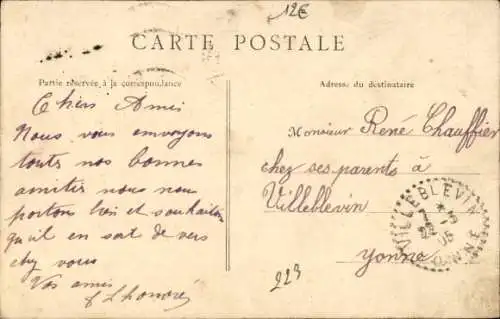 12€
CARTE POSTALE
Partie réservée à la correspondance
Adresse du destinataire
Chers Amis
Nous vous envoyons
toutes nos bonnes
amitiés nous nous
portons bien et souhaitons
qu'il en soit de vers
chez vous
Vos amis
Lhonoré
Monsieur René Chauffier
chez ses parents à
Villeblevin
Yonne
VILLEBLEVIN
YONNE
223